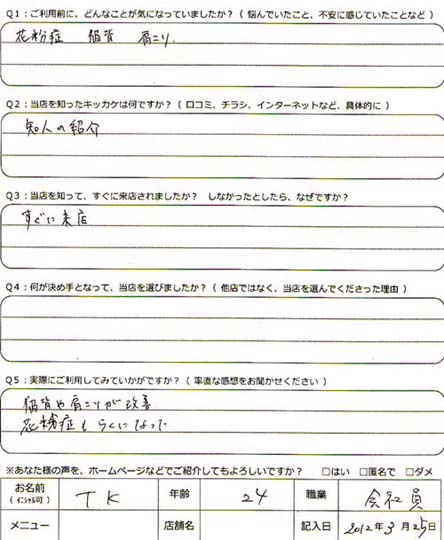 Q1:ご利用前に、どんなことが気になっていましたか?( 悩んでいたこと、不安に感じていたことなど )
花粉症 猫背 肩こり.
Q2:当店を知ったキッカケは何ですか?( 口コミ、チラシ、インターネットなど、具体的に )
知人の紹介
Q3:当店を知って、すぐに来店されましたか? しなかったとしたら、なぜですか?
すぐに来店
Q4:何が決め手となって、当店を選びましたか?( 他店ではなく、当店を選んでくださった理由 )
Q5:実際にご利用してみていかがですか?( 率直な感想をお聞かせください )
猫背や肩こりが改善
花粉症もらくになった
※あなた様の声を、ホームページなどでご紹介してもよろしいですか? □はい □匿名で □ダメ
お名前 (イニシャル可) TK 年齢 24 職業 会社員
メニュー 店舗名 記入日 2012年3月25日